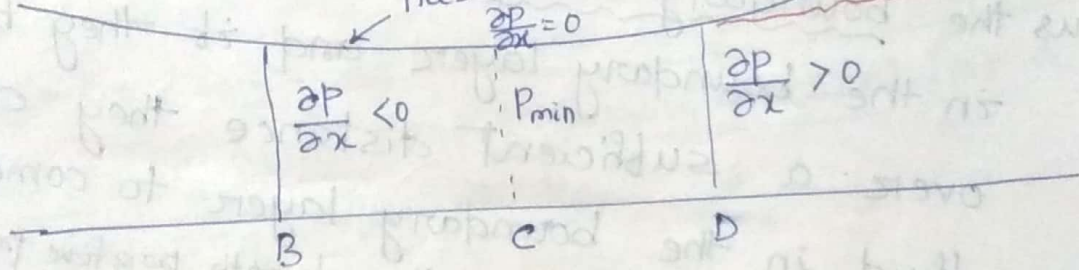 ∂P/∂x = 0
∂P/∂x < 0
Pmin
∂P/∂x > 0
B
C
D